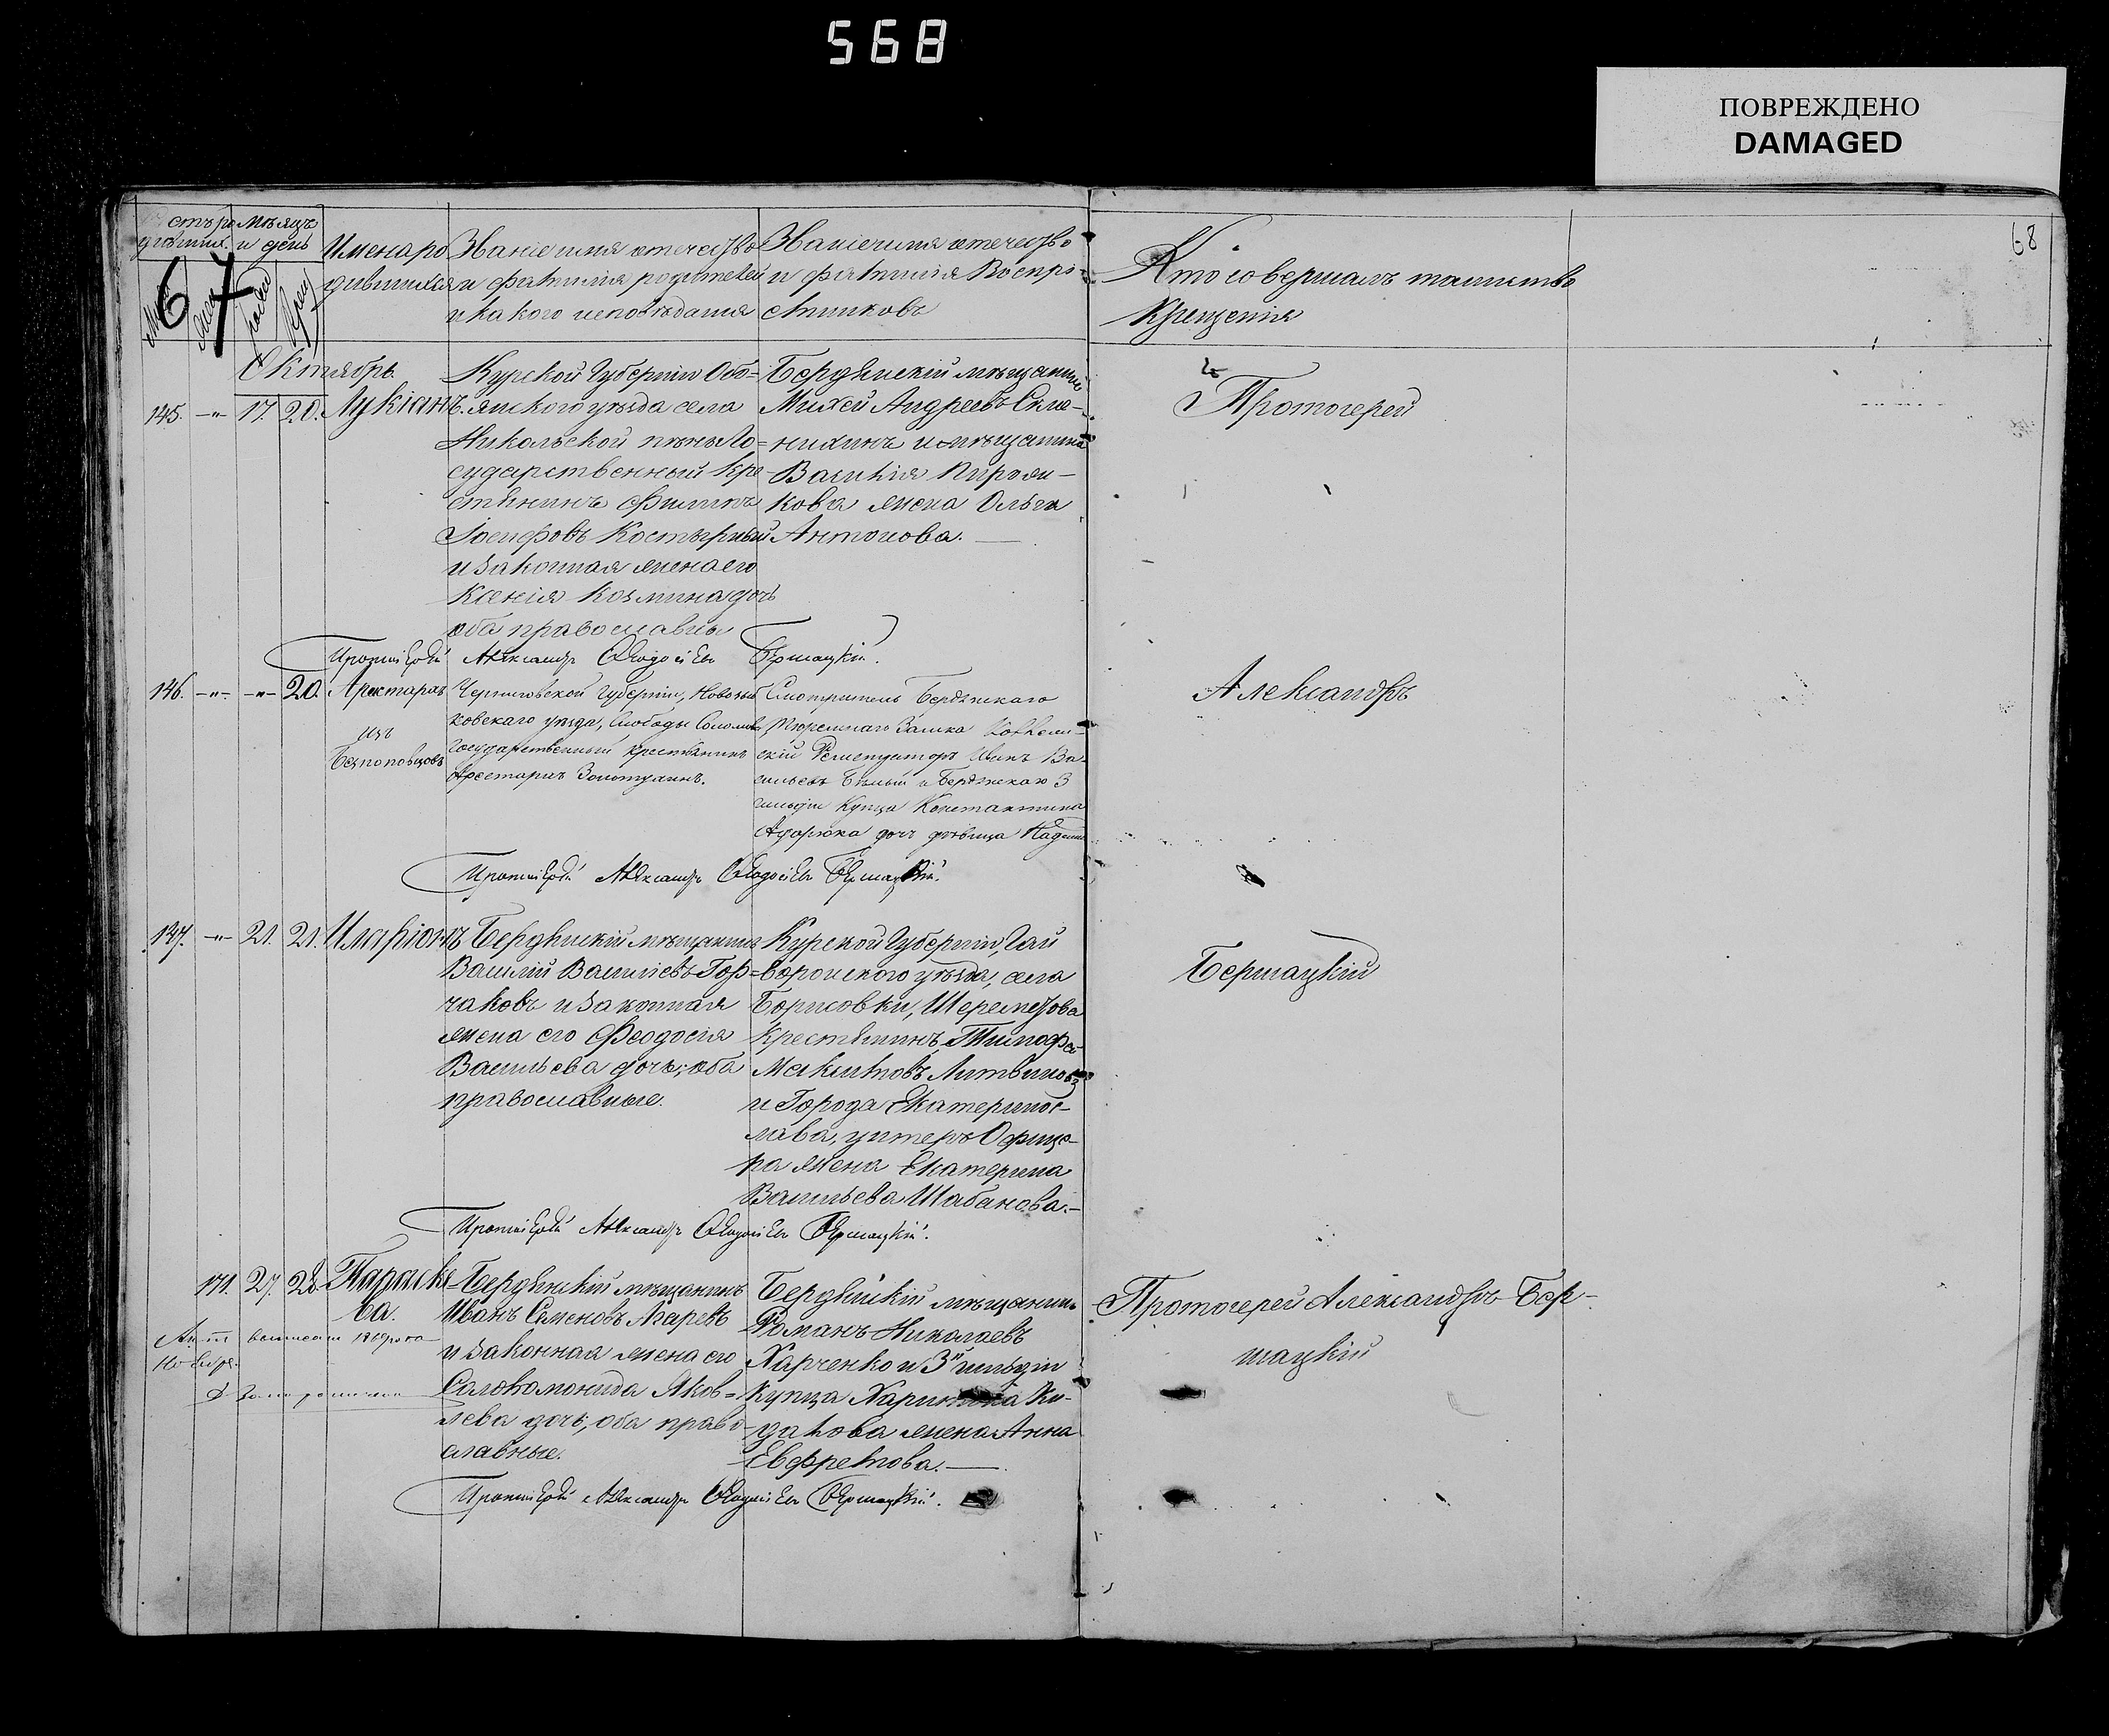 568
ПОВРЕЖДЕНО
DAMAGED
68
67
Мѣсяцъ
и день
Имена ро
дившихся
Званіе имя отечество
и фамилія родителей
и какого исповѣданія
Званіе имя отечество
и фамилія Воспрі-
емниковъ
Кто совершалъ таинство
Крещенія
Октябрь
145. -"- 17. 20. Лукіанъ.
Курской Губерніи Обо=
янскаго уѣзда села
Никольской Го=
сударственный Кре
стянинъ Филиппъ
Іосифовъ Костырный
и законная жена его
Ксенія Козмина дочь
оба православны
Бердянскій мѣщанинъ
Михей Андреевъ
и мѣщанина
Василія
кова жена Ольга
Антонова.
Протоіерей
Протоіерей Александръ Ѳеодосіевъ Бершацкій.
146. -"- -"- 20. Аристархъ
изъ
Безпоповцовъ
Черниговской Губерніи, Новозыб
ковскаго уѣзда, Слободы
Государственный крестьянинъ
Аристархъ Золотухинъ.
Смотритель Бердянскаго
Тюремнаго Замка Коллеж-
скій Регистраторъ Иванъ Ва-
сильевъ Бѣлый и Бердянскаго 3
гильдіи Купца Константина
дочь дѣвица
Александръ
Протоіерей Александръ Ѳеодосіевъ Бершацкій.
147. -"- 21. 21. Иларіонъ
Бердянскій мѣщанинъ
Василій Василіевъ Гор=
чаковъ и законная
жена его Феодосія
Васильева дочь; оба
православные.
Курской Губерніи, Гай
воронскаго уѣзда, села
Борисовки, Шереметова
Крестянинъ Тимофей
Литвиновъ
и Города Екатеринос-
лава, унтеръ Офице-
ра жена Екатерина
Васильева Шабанова.-
Бершацкій
Протоіерей Александръ Ѳеодосіевъ Бершацкій.
171. 27. 28. Параске-
ва.
Бердянскій мѣщанинъ
Иванъ Семеновъ
и законная жена его
Саловомонида Яков=
лева дочь; оба право
славные.
Бердянскій мѣщанинъ
Романъ Николаевъ
Харченко и 3й гильдіи
Купца
жена Анна
Протоіерей Александръ Бер-
шацкій
Протоіерей Александръ Ѳеодосіевъ Бершацкій.